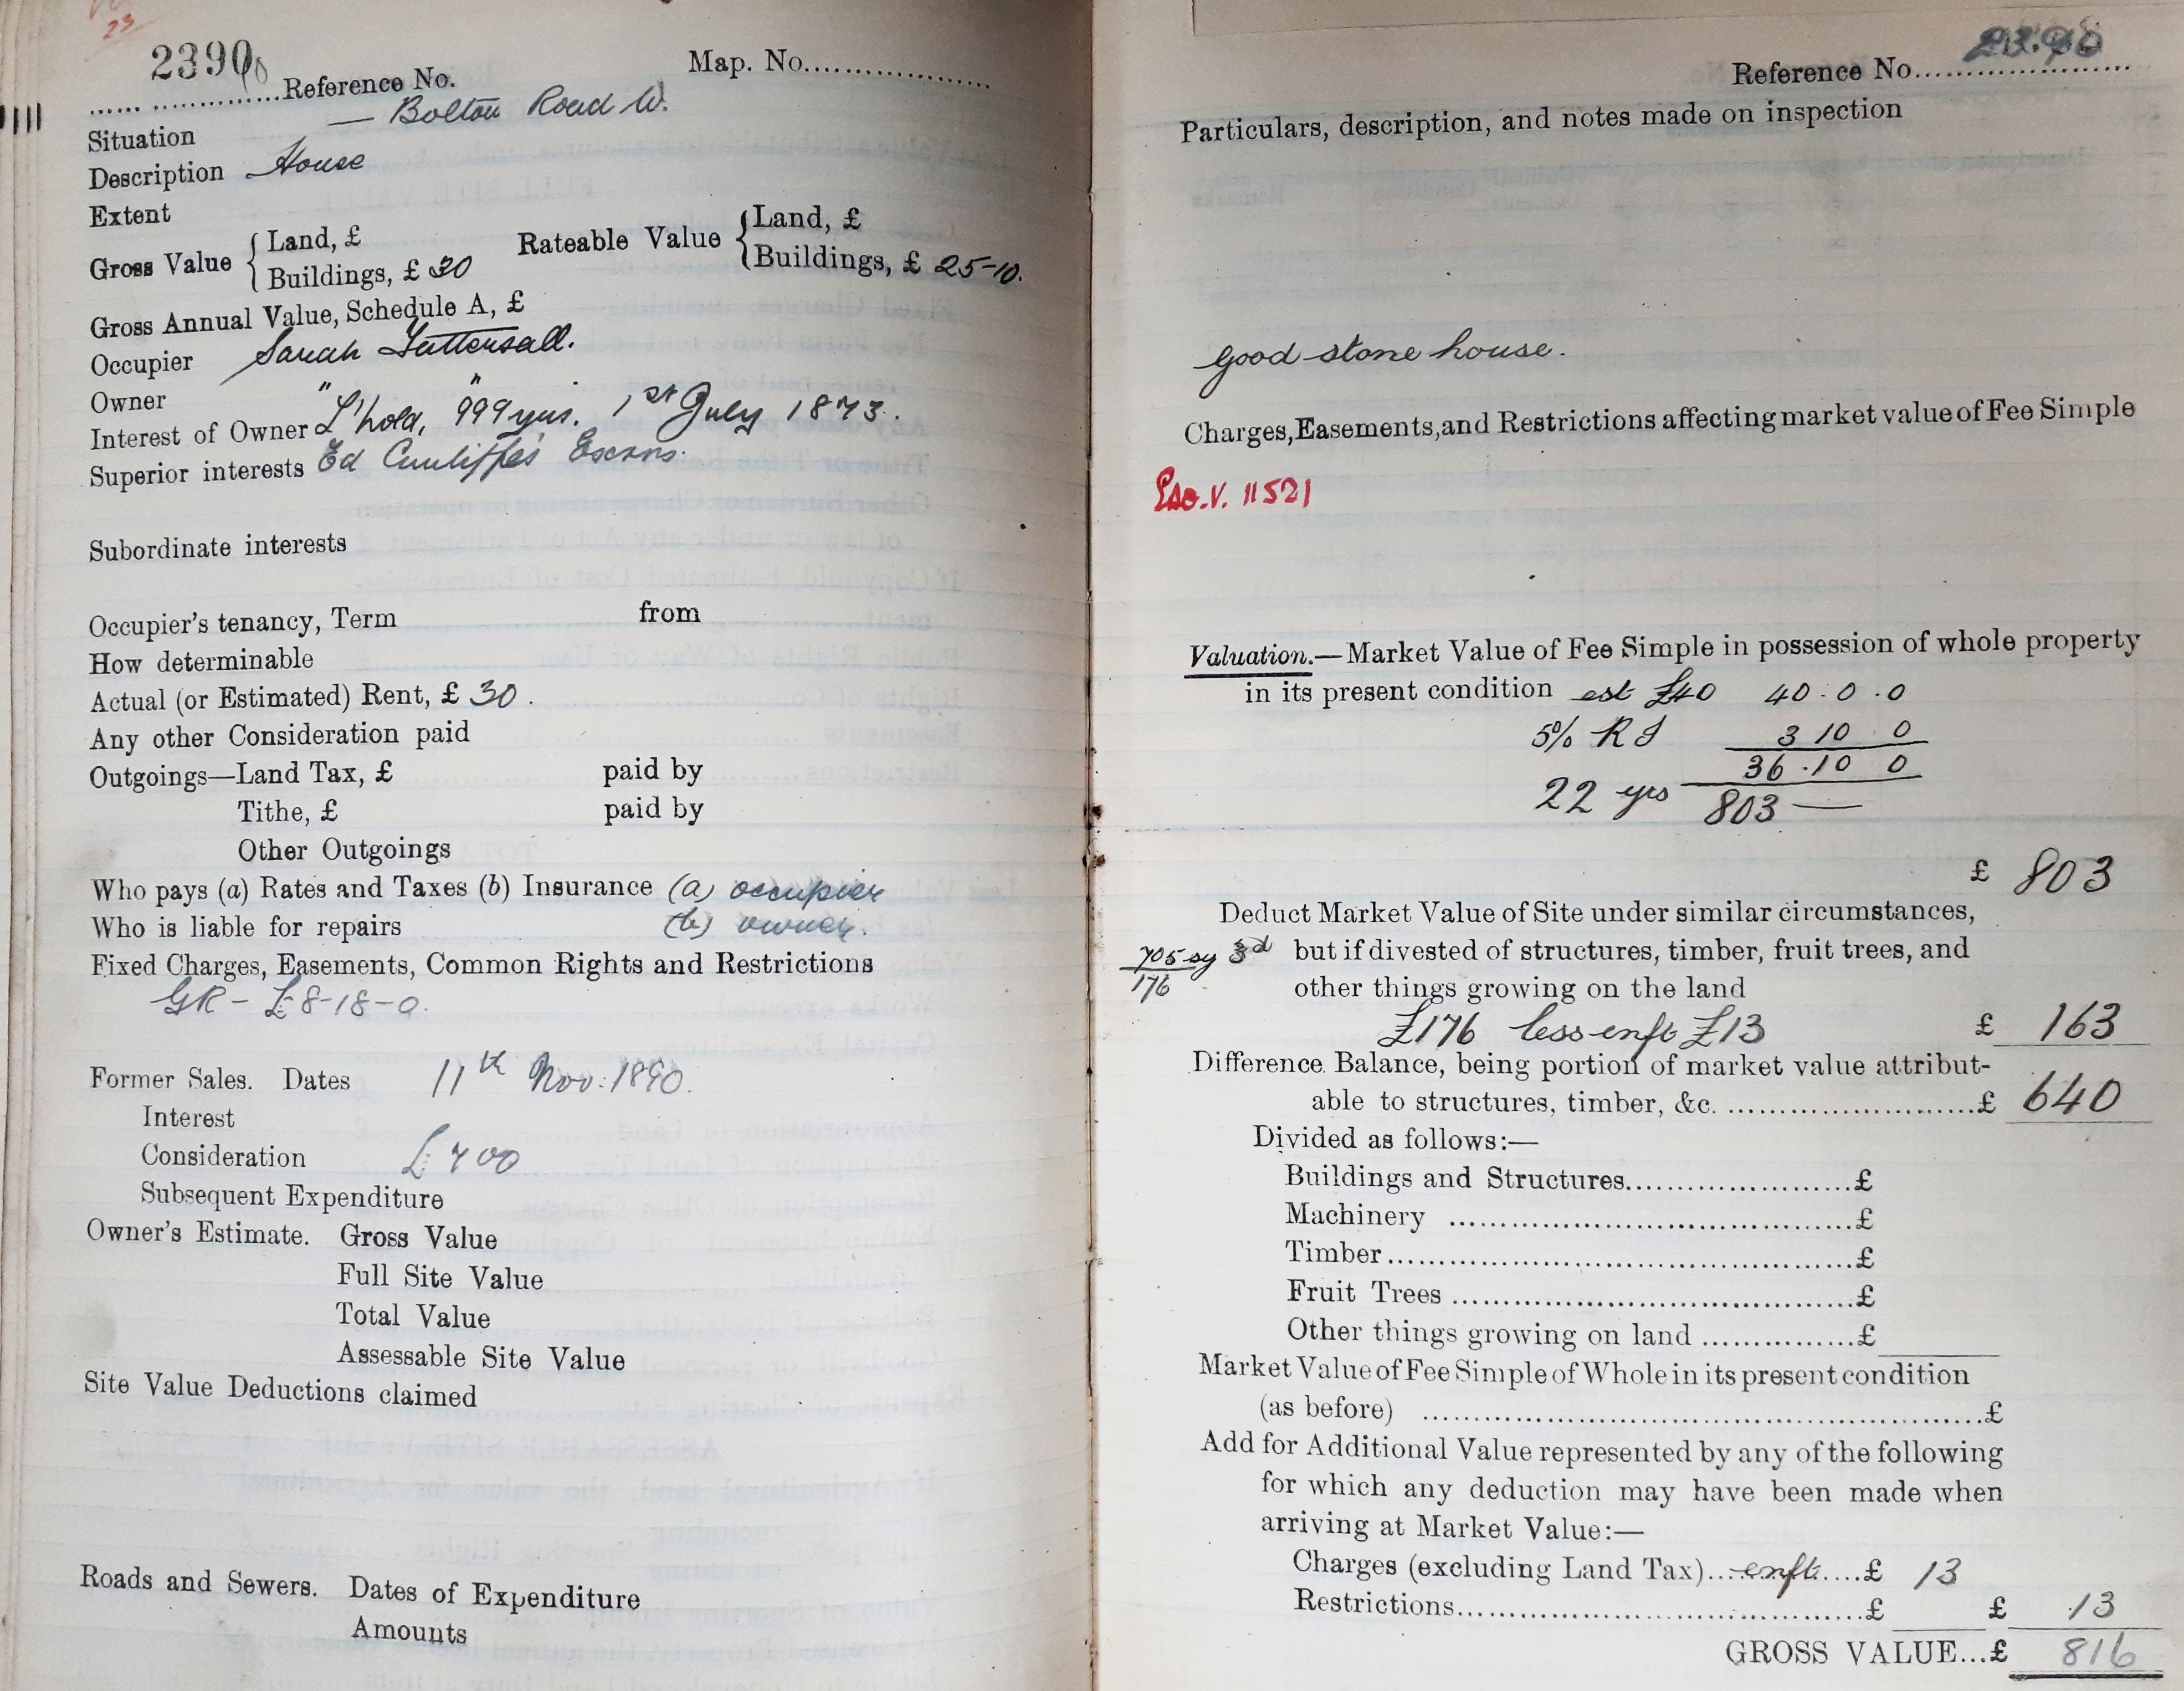 23
2390
Reference No.
Map. No.
Situation — Bolton Road W.
Description House
Extent
Gross Value { Land, £
Buildings, £ 30
Rateable Value { Land, £
Buildings, £ 25-10.
Gross Annual Value, Schedule A, £
Occupier Sarah Tattersall.
Owner " "
Interest of Owner L'hold, 999 yrs. 1st July 1873.
Superior interests Ed Cunliffe's Excrs.
Subordinate interests
Occupier's tenancy, Term from
How determinable
Actual (or Estimated) Rent, £ 30.
Any other Consideration paid
Outgoings—Land Tax, £ paid by
Tithe, £ paid by
Other Outgoings
Who pays (a) Rates and Taxes (b) Insurance (a) occupier
Who is liable for repairs (b) owner.
Fixed Charges, Easements, Common Rights and Restrictions
GR - £8-18-0.
Former Sales. Dates 11th Nov: 1890.
Interest
Consideration £700
Subsequent Expenditure
Owner's Estimate. Gross Value
Full Site Value
Total Value
Assessable Site Value
Site Value Deductions claimed
Roads and Sewers. Dates of Expenditure
Amounts
Reference No. 2390
Particulars, description, and notes made on inspection
good stone house.
Charges, Easements, and Restrictions affecting market value of Fee Simple
V. 11521
Valuation.—Market Value of Fee Simple in possession of whole property
in its present condition est £40 40.0.0
5% R I 3 10 0
36.10 0
22 yrs 803 —
£ 803
Deduct Market Value of Site under similar circumstances,
705 sy 3d but if divested of structures, timber, fruit trees, and
176 other things growing on the land
£176 less enft £13 £ 163
Difference Balance, being portion of market value attribut-
able to structures, timber, &c. £ 640
Divided as follows:—
Buildings and Structures £
Machinery £
Timber £
Fruit Trees £
Other things growing on land £
Market Value of Fee Simple of Whole in its present condition
(as before) £
Add for Additional Value represented by any of the following
for which any deduction may have been made when
arriving at Market Value:—
Charges (excluding Land Tax) enft. £ 13
Restrictions £ £ 13
GROSS VALUE...£ 816